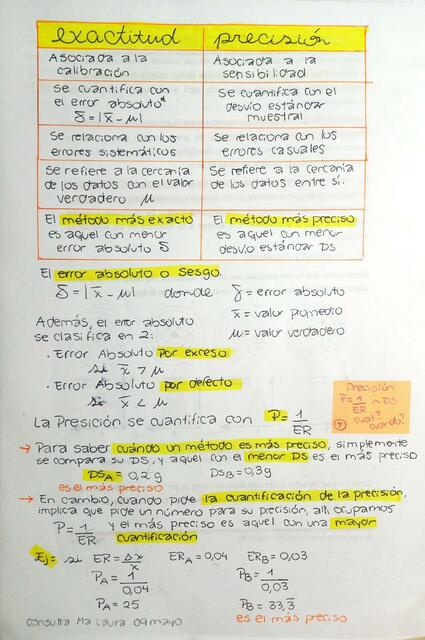 exactitud precisión
Asociada a la Asociada a la
calibración sensibilidad
Se cuantifica con Se cuantifica con el
el error absoluto* desvío estándar
δ = |x̄ - μ| muestral
Se relaciona con los Se relaciona con los
errores sistemáticos errores casuales
Se refiere a la cercanía Se refiere a la cercanía
de los datos con el valor de los datos entre sí.
verdadero μ
El método más exacto El método más preciso
es aquel con menor es aquel con menor
error absoluto δ desvío estándar DS
El error absoluto o sesgo.
δ = |x̄ - μ| donde δ = error absoluto
x̄ = valor promedio
Además, el error absoluto μ = valor verdadero
se clasifica en 2:
· Error Absoluto por exceso
si x̄ > μ
· Error Absoluto por defecto
si x̄ < μ
Precisión
P = 1/ER ∧ DS
? cual?
cuando?
La Presición se cuantifica con P = 1/ER
→ Para saber cuándo un método es más preciso, simplemente
se compara su DS, y aquel con el menor DS es el más preciso
DSA = 0,2 g DSB = 0,3 g
es el más preciso
→ En cambio, cuando pide la cuantificación de la precisión,
implica que pide un número para su precisión, allí ocupamos
P = 1/ER y el más preciso es aquel con una mayor
cuantificación
Ej= si ER = Δx/x̄ ERA = 0,04 ERB = 0,03
PA = 1/0,04 PB = 1/0,03
PA = 25 PB = 33,3̄
es el más preciso
consulta Ma Laura 09 mayo